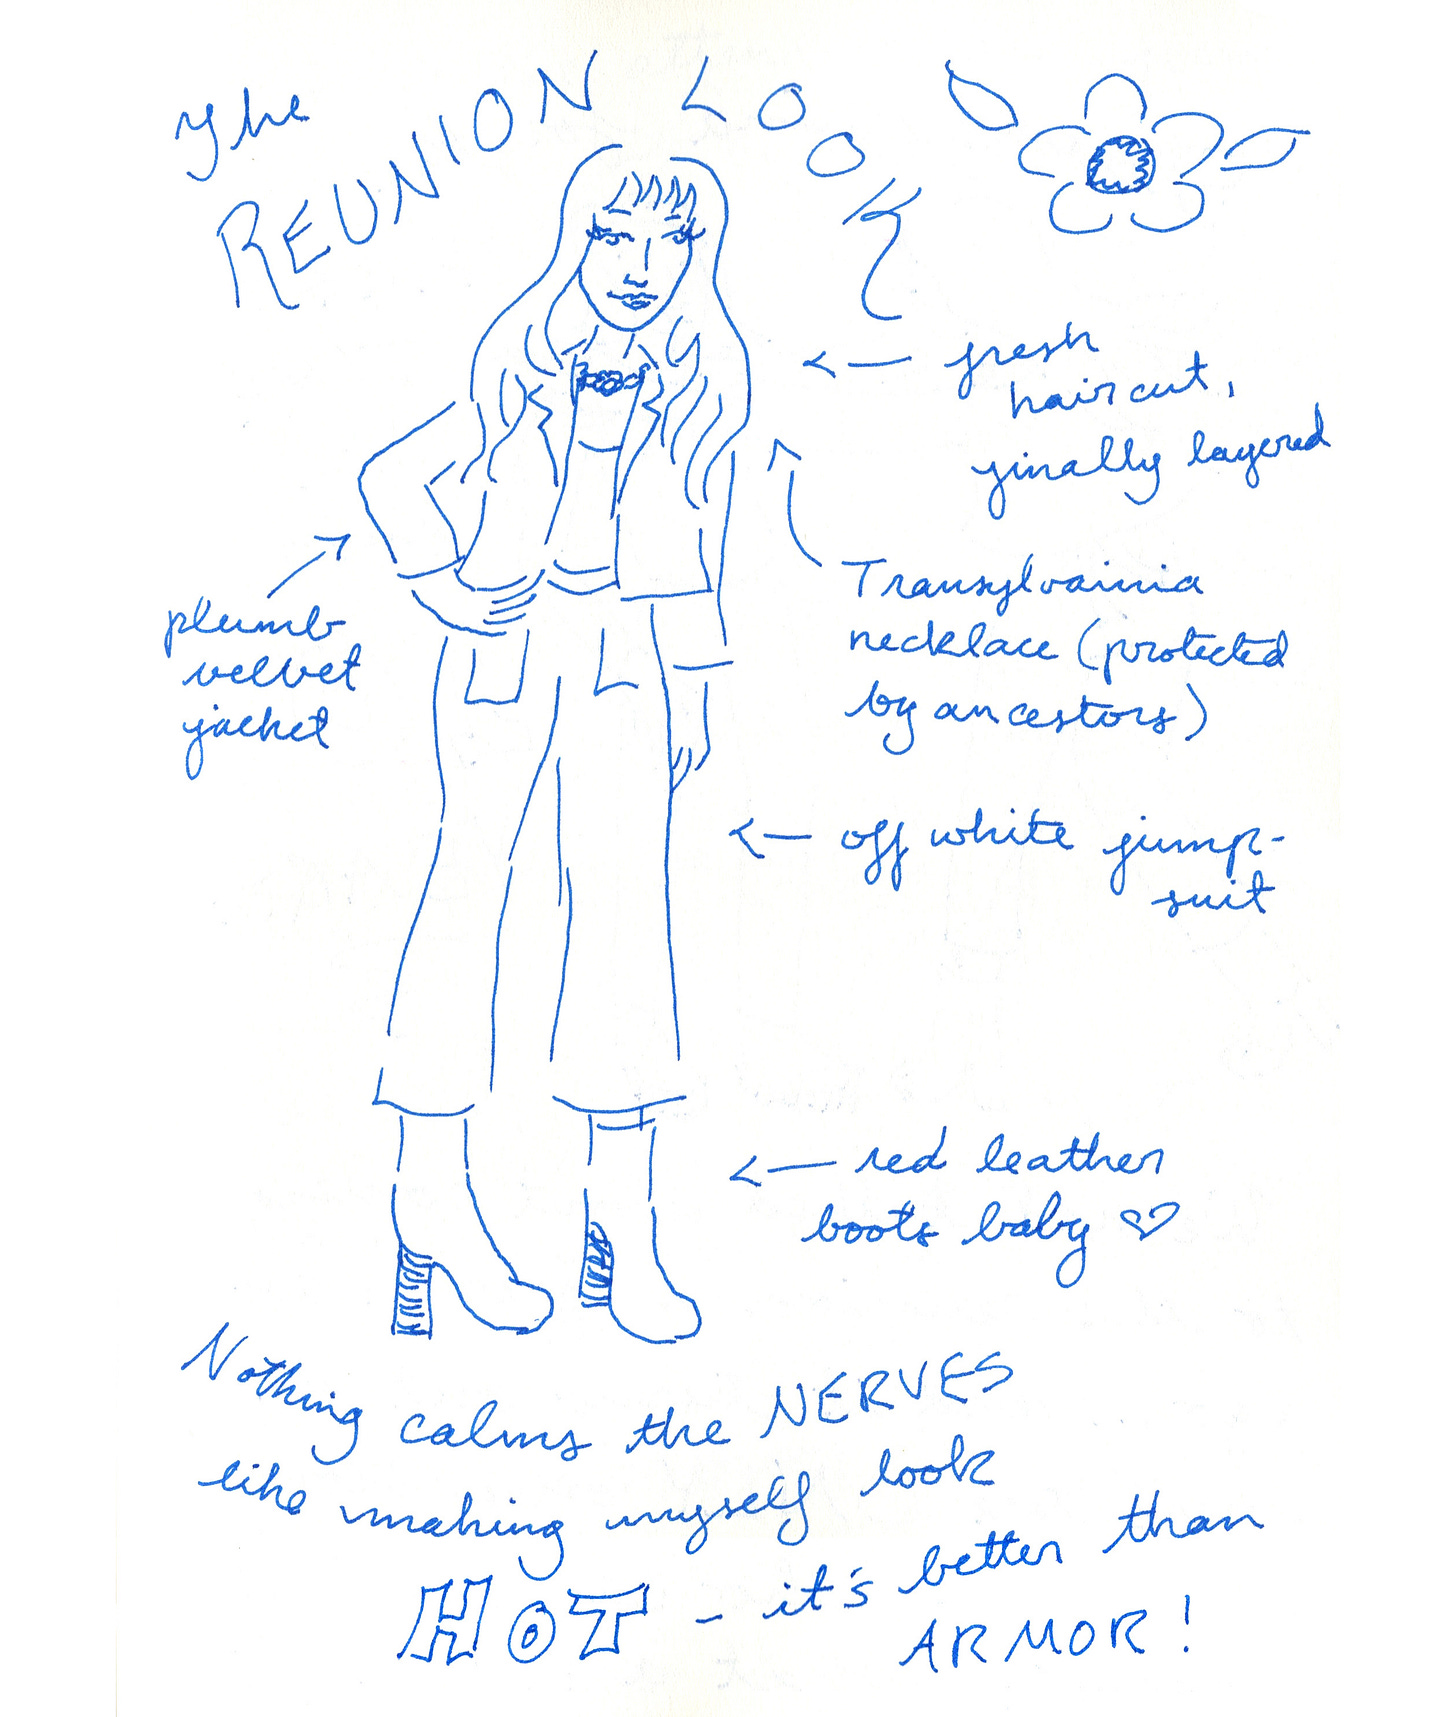 The
REUNION LOOK
fresh
haircut,
finally layered
Transylvainia
necklace (protected
by ancestors)
plumb
velvet
jacket
off white jump-
suit
red leather
boots baby ♡
Nothing calms the NERVES
like making myself look
HOT - it's better than
ARMOR!